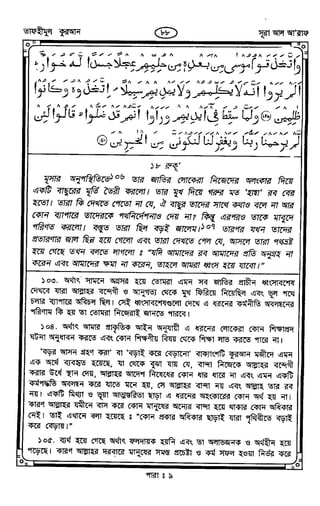 তাফহীমুল কুরআন
৮৮
সূরা আল আ'রাফ
وَاتَّخَذَ قَوْمُ مُوسَى مِنْ بَعْدِهِ مِنْ حُلِيِّهِمْ عِجْلًا جَسَدًا لَهُ خُوَارٌ
أَلَمْ يَرَوْا أَنَّهُ لَا يُكَلِّمُهُمْ وَلَا يَهْدِيهِمْ سَبِيلًا اتَّخَذُوهُ وَكَانُوا
ظَالِمِينَ وَلَمَّا سُقِطَ فِي أَيْدِيهِمْ وَرَأَوْا أَنَّهُمْ قَدْ ضَلُّوا قَالُوا لَئِنْ
لَمْ يَرْحَمْنَا رَبُّنَا وَيَغْفِرْ لَنَا لَنَكُونَنَّ مِنَ الْخَاسِرِينَ
১৮ রুকূ'
মূসার অনুপস্থিতিতে১০৬ তার জাতির লোকেরা নিজেদের অলংকার দিয়ে
একটি বাছুরের মূর্তি তৈরী করলো। তার মুখ দিয়ে গরুর মত 'হাম্বা' রব বের
হতো। তারা কি দেখতে পেতো না যে, ঐ বাছুর তাদের সাথে কথাও বলে না আর
কোন ব্যাপারে তাদেরকে পথনির্দেশনাও দেয় না? কিন্তু এরপরও তাকে মাবুদে
পরিণত করলো। বস্তুত তারা ছিল বড়ই জালেম।১০৭ তারপর যখন তাদের
প্রতারণার জাল ছিন্ন হয়ে গেলো এবং তারা দেখতে পেল যে, আসলে তারা পথভ্রষ্ট
হয়ে গেছে তখন বলতে লাগলো : "যদি আমাদের রব আমাদের প্রতি অনুগ্রহ না
করেন এবং আমাদের ক্ষমা না করেন, তাহলে আমরা ধ্বংস হয়ে যাবো।"
১০৩. অর্থাৎ সামনে অগ্রসর হয়ে তোমরা এমন সব জাতির প্রাচীন ধ্বংসাবশেষ
দেখবে যারা আল্লাহর বন্দেগী ও আনুগত্য থেকে মুখ ফিরিয়ে নিয়েছিল এবং ভুল পথে
চলার ব্যাপারে অবিচল ছিল। সেই ধ্বংসাবশেষগুলো দেখে এ ধরনের কর্মনীতি অবলম্বনের
পরিণাম কি হয় তা তোমরা নিজেরাই জানতে পারবে।
১০৪. অর্থাৎ আমার প্রাকৃতিক আইন অনুযায়ী এ ধরনের লোকেরা কোন শিক্ষাপ্রদ
ঘটনা অনুধাবন করতে এবং কোন শিক্ষণীয় বিষয় থেকে শিক্ষা লাভ করতে পারে না।
'বড়র আসন গ্রহণ করা' বা 'বড়াই করে বেড়ানো' বাক্যাংশটি কুরআন মজীদে এমন
এক অর্থে ব্যবহৃত হয়েছে, যা থেকে বুঝা যায় যে, বান্দা নিজেকে আল্লাহর বন্দেগী
করার ঊর্ধে স্থান দেয়, আল্লাহর আদেশ নিষেধের কোন ধার ধারে না এবং এমন একটি
কর্মপদ্ধতি অবলম্বন করে যাতে মনে হয়, সে আল্লাহর বান্দা নয় এবং আল্লাহ তার রব
নয়। একটি মিথ্যা ও ভুয়া আত্মম্ভরিতা ছাড়া এ ধরনের অহংকারের কোন অর্থ হয় না।
কারণ আল্লাহর যমীনে বাস করে কোন মানুষের অন্যের বান্দা হয়ে থাকার কোন অধিকার
নেই। তাই এখানে বলা হয়েছে : "কোন প্রকার অধিকার ছাড়াই যারা পৃথিবীতে বড়াই
করে বেড়ায়।"
১০৫. ব্যর্থ হয়ে গেছে অর্থাৎ ফলদায়ক হয়নি এবং তা অলাভজনক ও অর্থহীন হয়ে
পড়েছে। কারণ আল্লাহর দরবারে মানুষের সমস্ত প্রচেষ্টা ও কর্ম সফল হওয়া নির্ভর করে
পারা : ৯